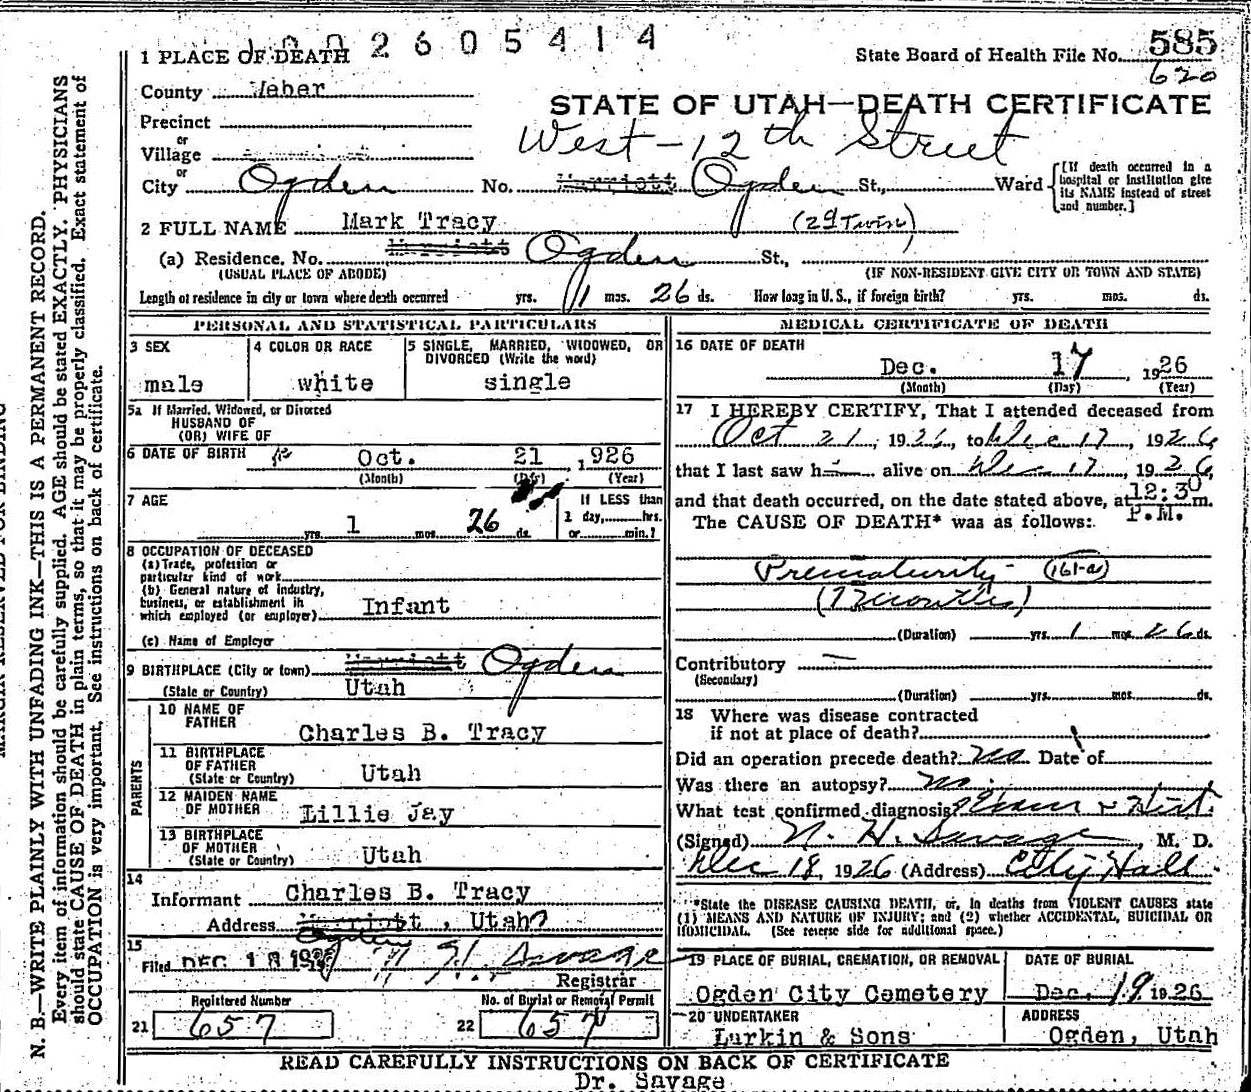 1002605414
1 PLACE OF DEATH
State Board of Health File No. 585
620
County Weber
STATE OF UTAH—DEATH CERTIFICATE
Precinct
or
Village
West - 12th Street
or
City Ogden No. Harriott Ogden St., Ward
[If death occurred in a hospital or institution give its NAME instead of street and number.]
2 FULL NAME Mark Tracy (2d Twin)
(a) Residence. No. Harriott Ogden St.,
(USUAL PLACE OF ABODE) (IF NON-RESIDENT GIVE CITY OR TOWN AND STATE)
Length of residence in city or town where death occurred yrs. 1 mos. 26 ds. How long in U. S., if foreign birth? yrs. mos. ds.
PERSONAL AND STATISTICAL PARTICULARS
3 SEX
male
4 COLOR OR RACE
white
5 SINGLE, MARRIED, WIDOWED, OR DIVORCED (Write the word)
single
5a If Married, Widowed, or Divorced
HUSBAND OF
(OR) WIFE OF
6 DATE OF BIRTH Oct. 21, 1926
(Month) (Day) (Year)
7 AGE
yrs. 1 mos. 26 ds.
If LESS than
1 day, hrs.
or min.?
8 OCCUPATION OF DECEASED
(a) Trade, profession or
particular kind of work
(b) General nature of industry,
business, or establishment in
which employed (or employer) Infant
(c) Name of Employer
9 BIRTHPLACE (City or town) Harriott Ogden
(State or Country) Utah
PARENTS
10 NAME OF
FATHER Charles B. Tracy
11 BIRTHPLACE
OF FATHER
(State or Country) Utah
12 MAIDEN NAME
OF MOTHER Lillie Jay
13 BIRTHPLACE
OF MOTHER
(State or Country) Utah
14
Informant Charles B. Tracy
Address Harriott, Utah
Ogden
15
Filed DEC 18 1926 H. Savage
Registrar
Registered Number
21 657
No. of Burial or Removal Permit
22 657
MEDICAL CERTIFICATE OF DEATH
16 DATE OF DEATH
Dec. 17, 1926
(Month) (Day) (Year)
17 I HEREBY CERTIFY, That I attended deceased from
Oct 21, 1926, to Dec 17, 1926
that I last saw h alive on Dec 17, 1926,
and that death occurred, on the date stated above, at 12:30 m.
P.M.
The CAUSE OF DEATH* was as follows:
Prematurity - (161-a)
(7 months)
(Duration) yrs. 1 mos. 26 ds.
Contributory —
(Secondary)
(Duration) yrs. mos. ds.
18 Where was disease contracted
if not at place of death?
Did an operation precede death? No Date of
Was there an autopsy? No
What test confirmed diagnosis? Exam & Hist.
(Signed) N. H. Savage, M. D.
Dec 18, 1926 (Address) City Hall
*State the DISEASE CAUSING DEATH, or, in deaths from VIOLENT CAUSES state
(1) MEANS AND NATURE OF INJURY; and (2) whether ACCIDENTAL, SUICIDAL OR
HOMICIDAL. (See reverse side for additional space.)
19 PLACE OF BURIAL, CREMATION, OR REMOVAL
Ogden City Cemetery
DATE OF BURIAL
Dec. 19 1926
20 UNDERTAKER
Larkin & Sons
ADDRESS
Ogden, Utah
READ CAREFULLY INSTRUCTIONS ON BACK OF CERTIFICATE
Dr. Savage
MARGIN RESERVED FOR BINDING
N. B.—WRITE PLAINLY WITH UNFADING INK—THIS IS A PERMANENT RECORD.
Every item of information should be carefully supplied. AGE should be stated EXACTLY. PHYSICIANS
should state CAUSE OF DEATH in plain terms, so that it may be properly classified. Exact statement of
OCCUPATION is very important. See instructions on back of certificate.